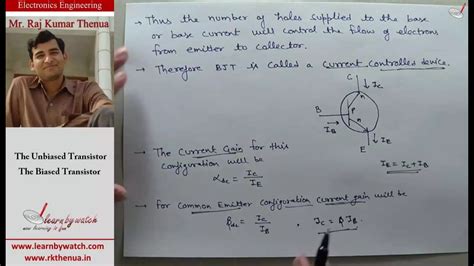 Electronics Engineering
Mr. Raj Kumar Thenua
The Unbiased Transistor
The Biased Transistor
learnbywatch
www.learnbywatch.com
www.rkthenua.in
→ Thus the number of holes supplied to the base
or base current will control the flow of electrons
from emitter to collector.
→ Therefore BJT is called a current controlled device.
C
↓ Ic
n
P
B
IB
n
E
↓ IE
IE = Ic + IB
→ The current Gain for this
configuration will be
αdc = Ic
IE
→ For Common Emitter Configuration current gain will be
βdc = Ic , Ic = β·IB.
IB